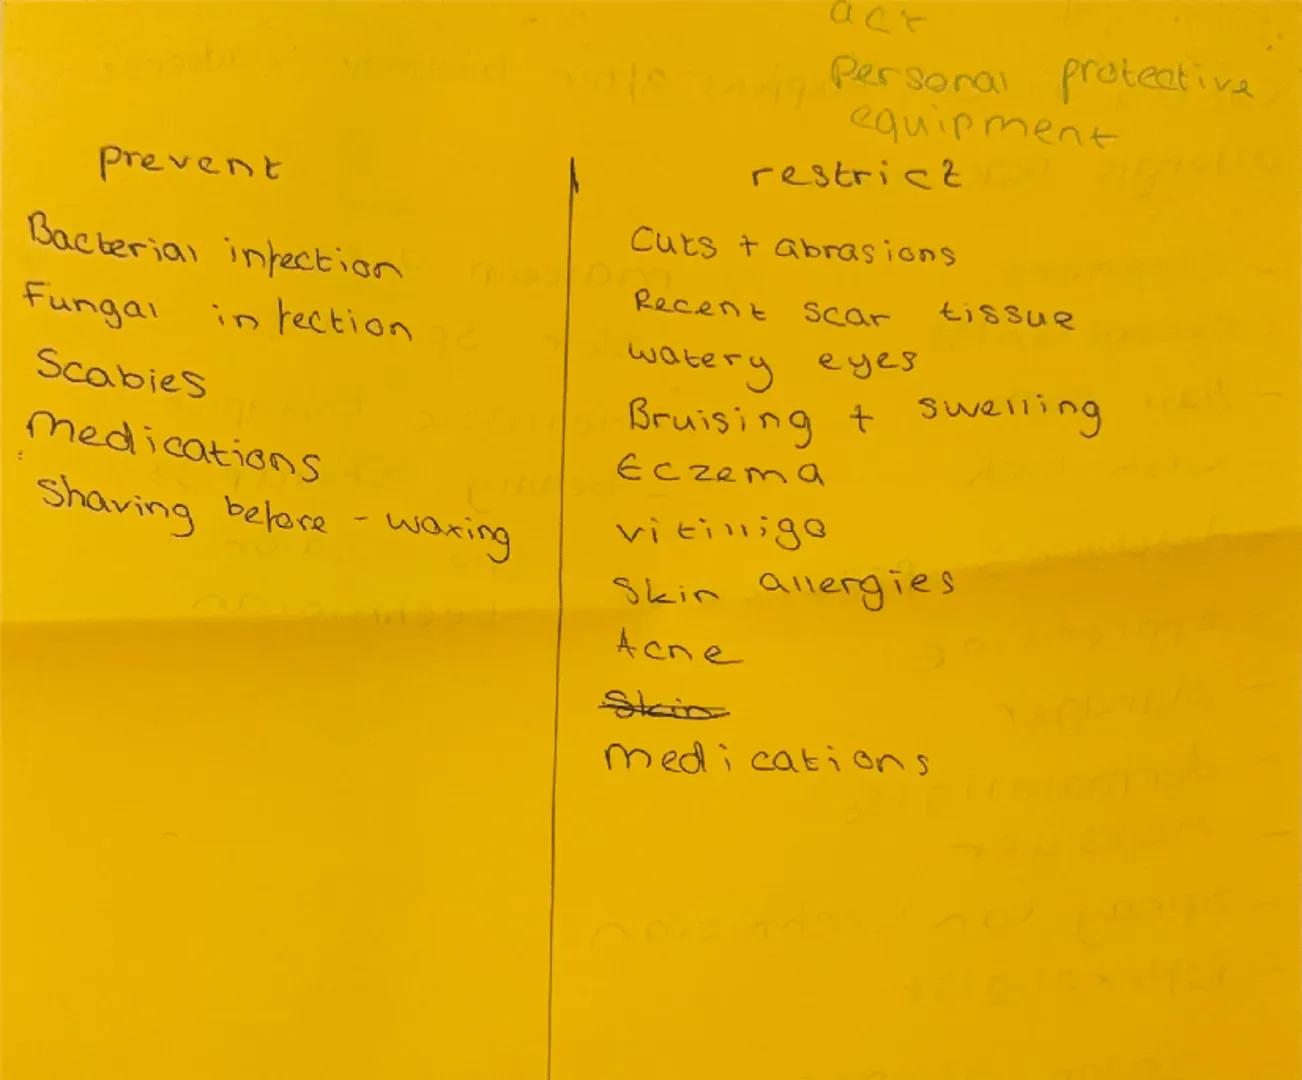 act
Personal protective
equipment
prevent
Bacterial infection
Fungal infection
Scabies
Medications
Shaving before - waxing
restrict
Cuts + abrasions
Recent scar tissue
watery eyes
Bruising + swelling
Eczema
vitilligo
Skin allergies
Acne
Skin
medications